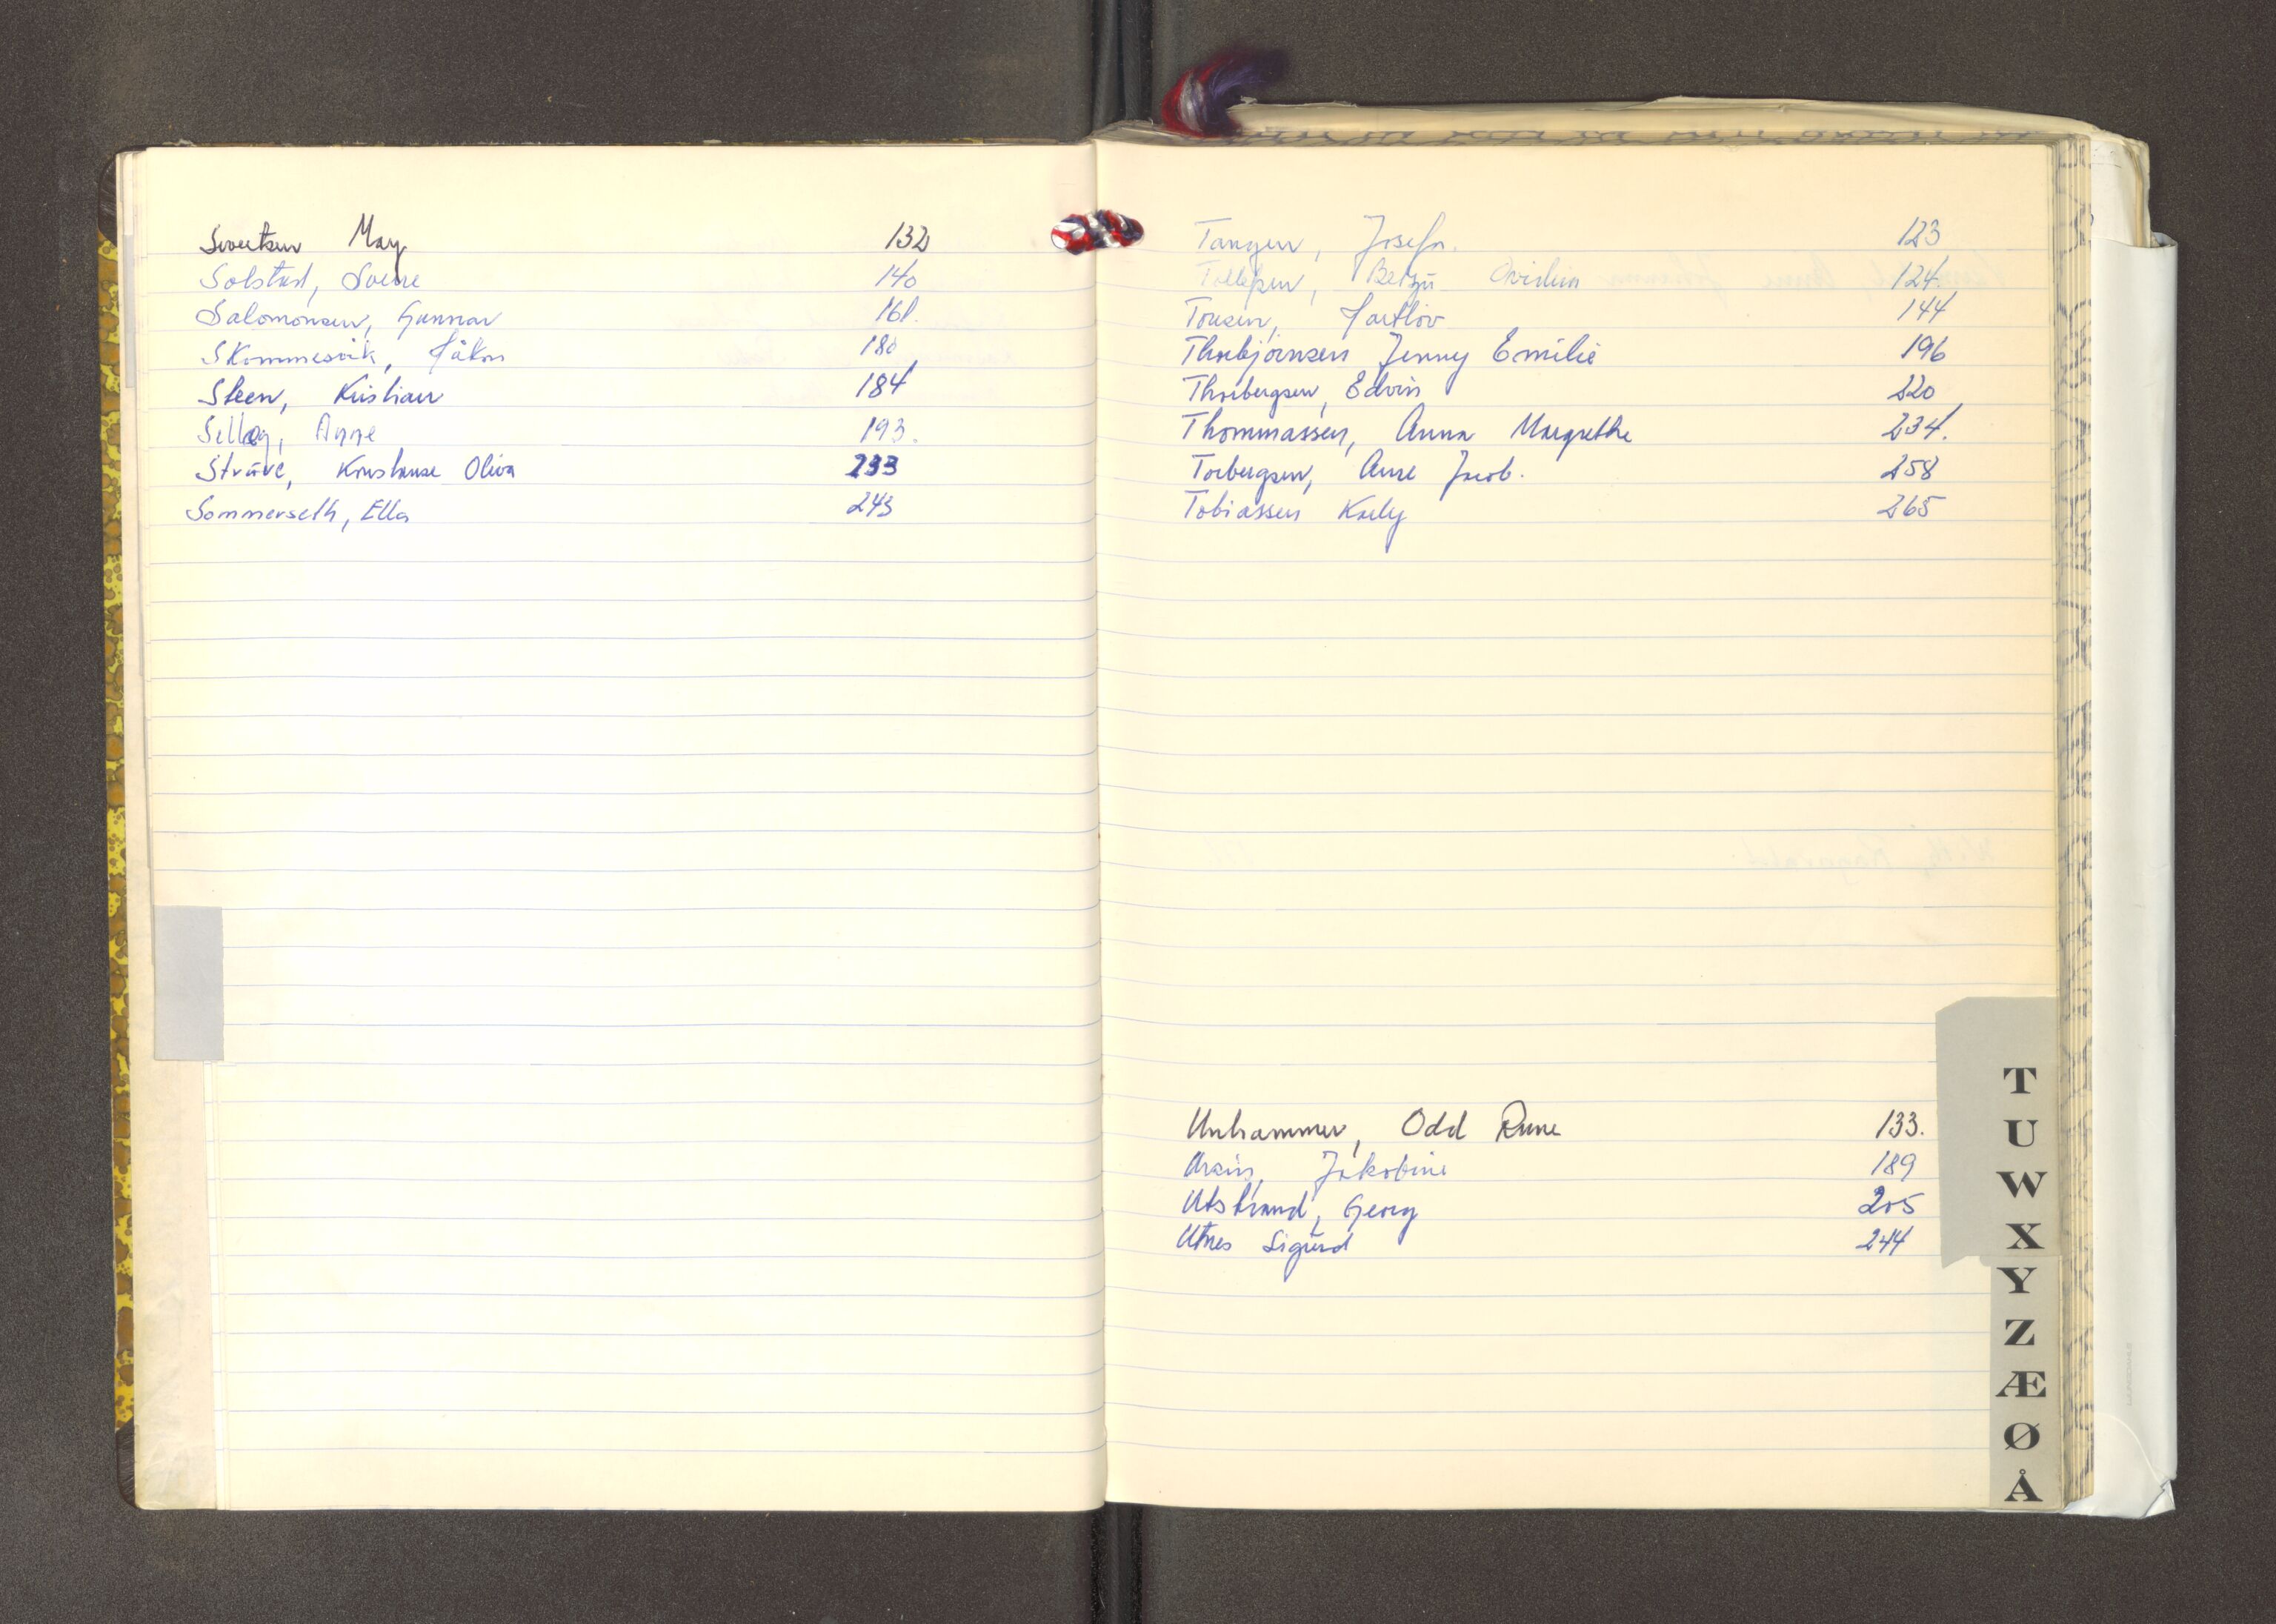 Sivertsen May 132
Solstad, Sverre 140
Salomonsen, Gunnar 161.
Skommesvik, Håkon 180
Steen, Kristian 184
Selløy, Anne 193.
Strüve, Konstanse Oliva 233
Sommerseth, Ella 243
Tangen, Josefa. 123
Tollefsen, Betzü 124.
Tousen, Hartløv 144
Thorbjørnsen Jenny Emilie 196
Thorbergsen, Edvin 220
Thommassen, Anna Margrethe 234.
Torbergsen, Anne Jacob. 258
Tobiassen Karly 265
Unhammer, Odd Rune 133.
Jakobine 189
Utstrand, Georg 205
Utnes Sigurd 244
T
U
W
X
Y
Z
Æ
Ø
Å